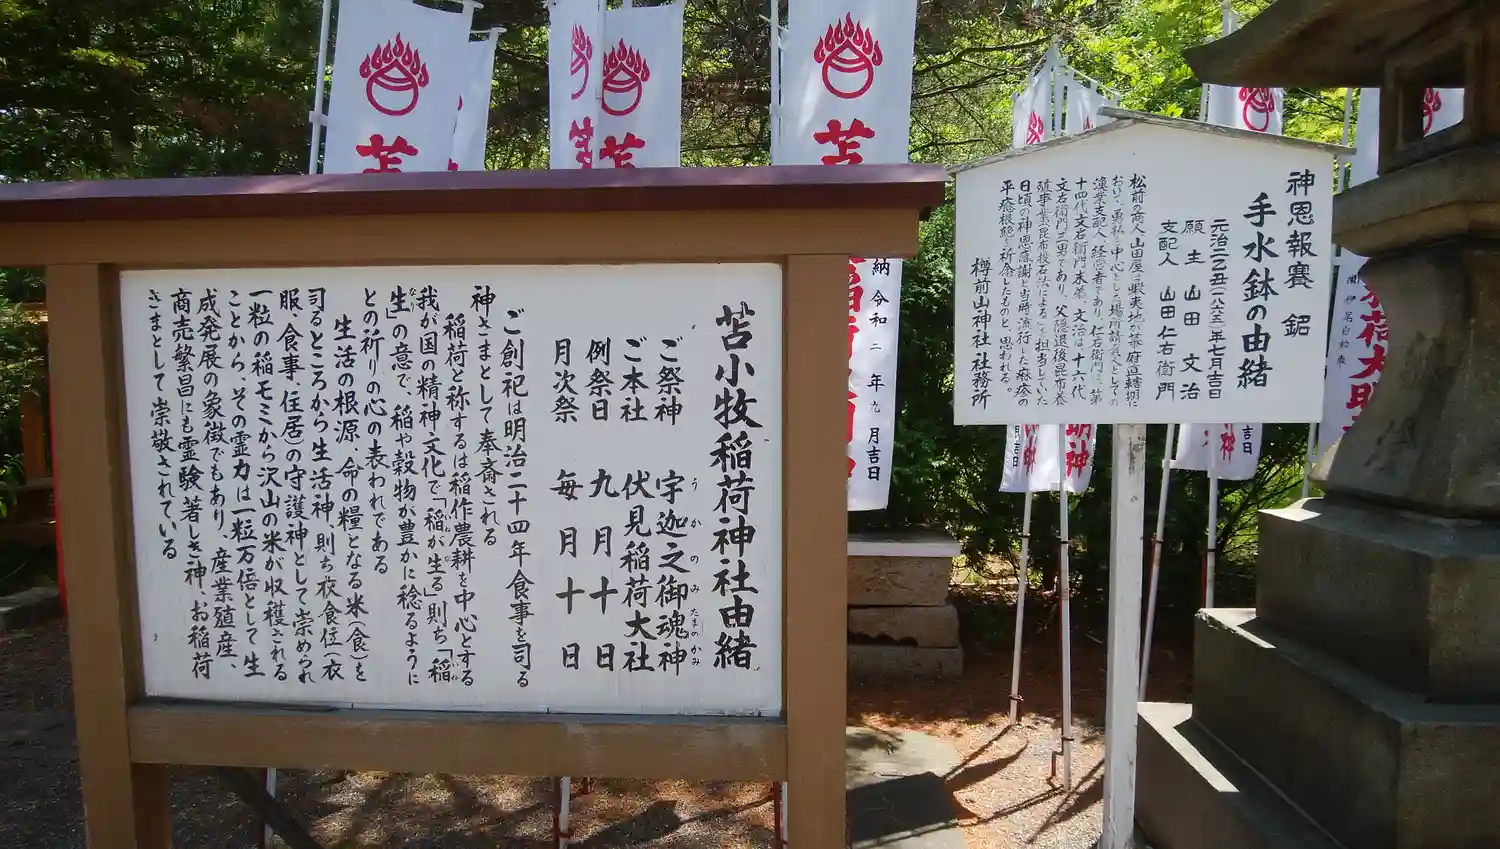 苫小牧稲荷神社由緒
ご祭神 宇迦之御魂神
うかのみたまのかみ
ご本社 伏見稲荷大社
例祭日 九月十日
月次祭 毎月十日
ご創祀は明治二十四年食事を司る
神さまとして奉斎される
稲荷と称するは稲作農耕を中心とする
我が国の精神文化で「稲が生る」則ち「稲
生」の意で、稲や穀物が豊かに稔るように
との祈りの心の表われである
生活の根源、命の糧となる米(食)を
司るところから生活神、則ち衣食住(衣
服、食事、住居)の守護神として崇められ
一粒の稲モミから沢山の米が収穫される
ことから、その霊力は一粒万倍として生
成発展の象徴でもあり、産業殖産、
商売繁昌にも霊験著しき神、お稲荷
さまとして崇敬されている
神恩報賽 銘
手水鉢の由緒
元治二乙丑(一八六五)年七月吉日
願主 山田文治
支配人 山田仁右衛門
松前の商人山田屋は蝦夷地が幕府直轄期に
おいて、勇払を中心とした場所請負人としての
漁業支配人、経営者であり、仁右衛門は、第
十四代文右衛門末弟、文治は、十六代
文右衛門三男であり、父隠退後昆布養
殖事業(昆布投石法による)を担当していた
日頃の神恩感謝と当時流行した麻疹の
平癒根絶を祈念したものと、思われる。
樽前山神社 社務所
苫
苫
苫
納 令和二年九月吉日
明神
吉日
荷大明